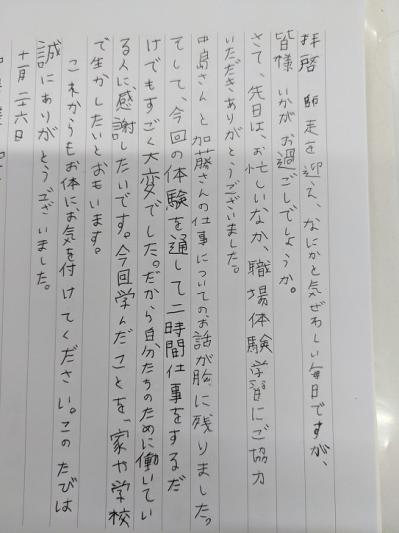 拝啓 師走を迎え、なにかと気ぜわしい毎日ですが、
皆様 いかがお過ごしでしょうか。
さて、先日は、お忙しいなか、職場体験学習にご協力
いただきありがとうございました。
中島さんと加藤さんの仕事についてのお話が胸に残りました。
そして、今回の体験を通して二時間仕事をするだ
けでもすごく大変でした。だから自分たちのために働いてい
る人に感謝したいです。今回学んだことを、家や学校
で生かしたいとおもいます。
これからもお体にお気を付けてください。このたびは
誠にありがとうございました。
十一月二十六日